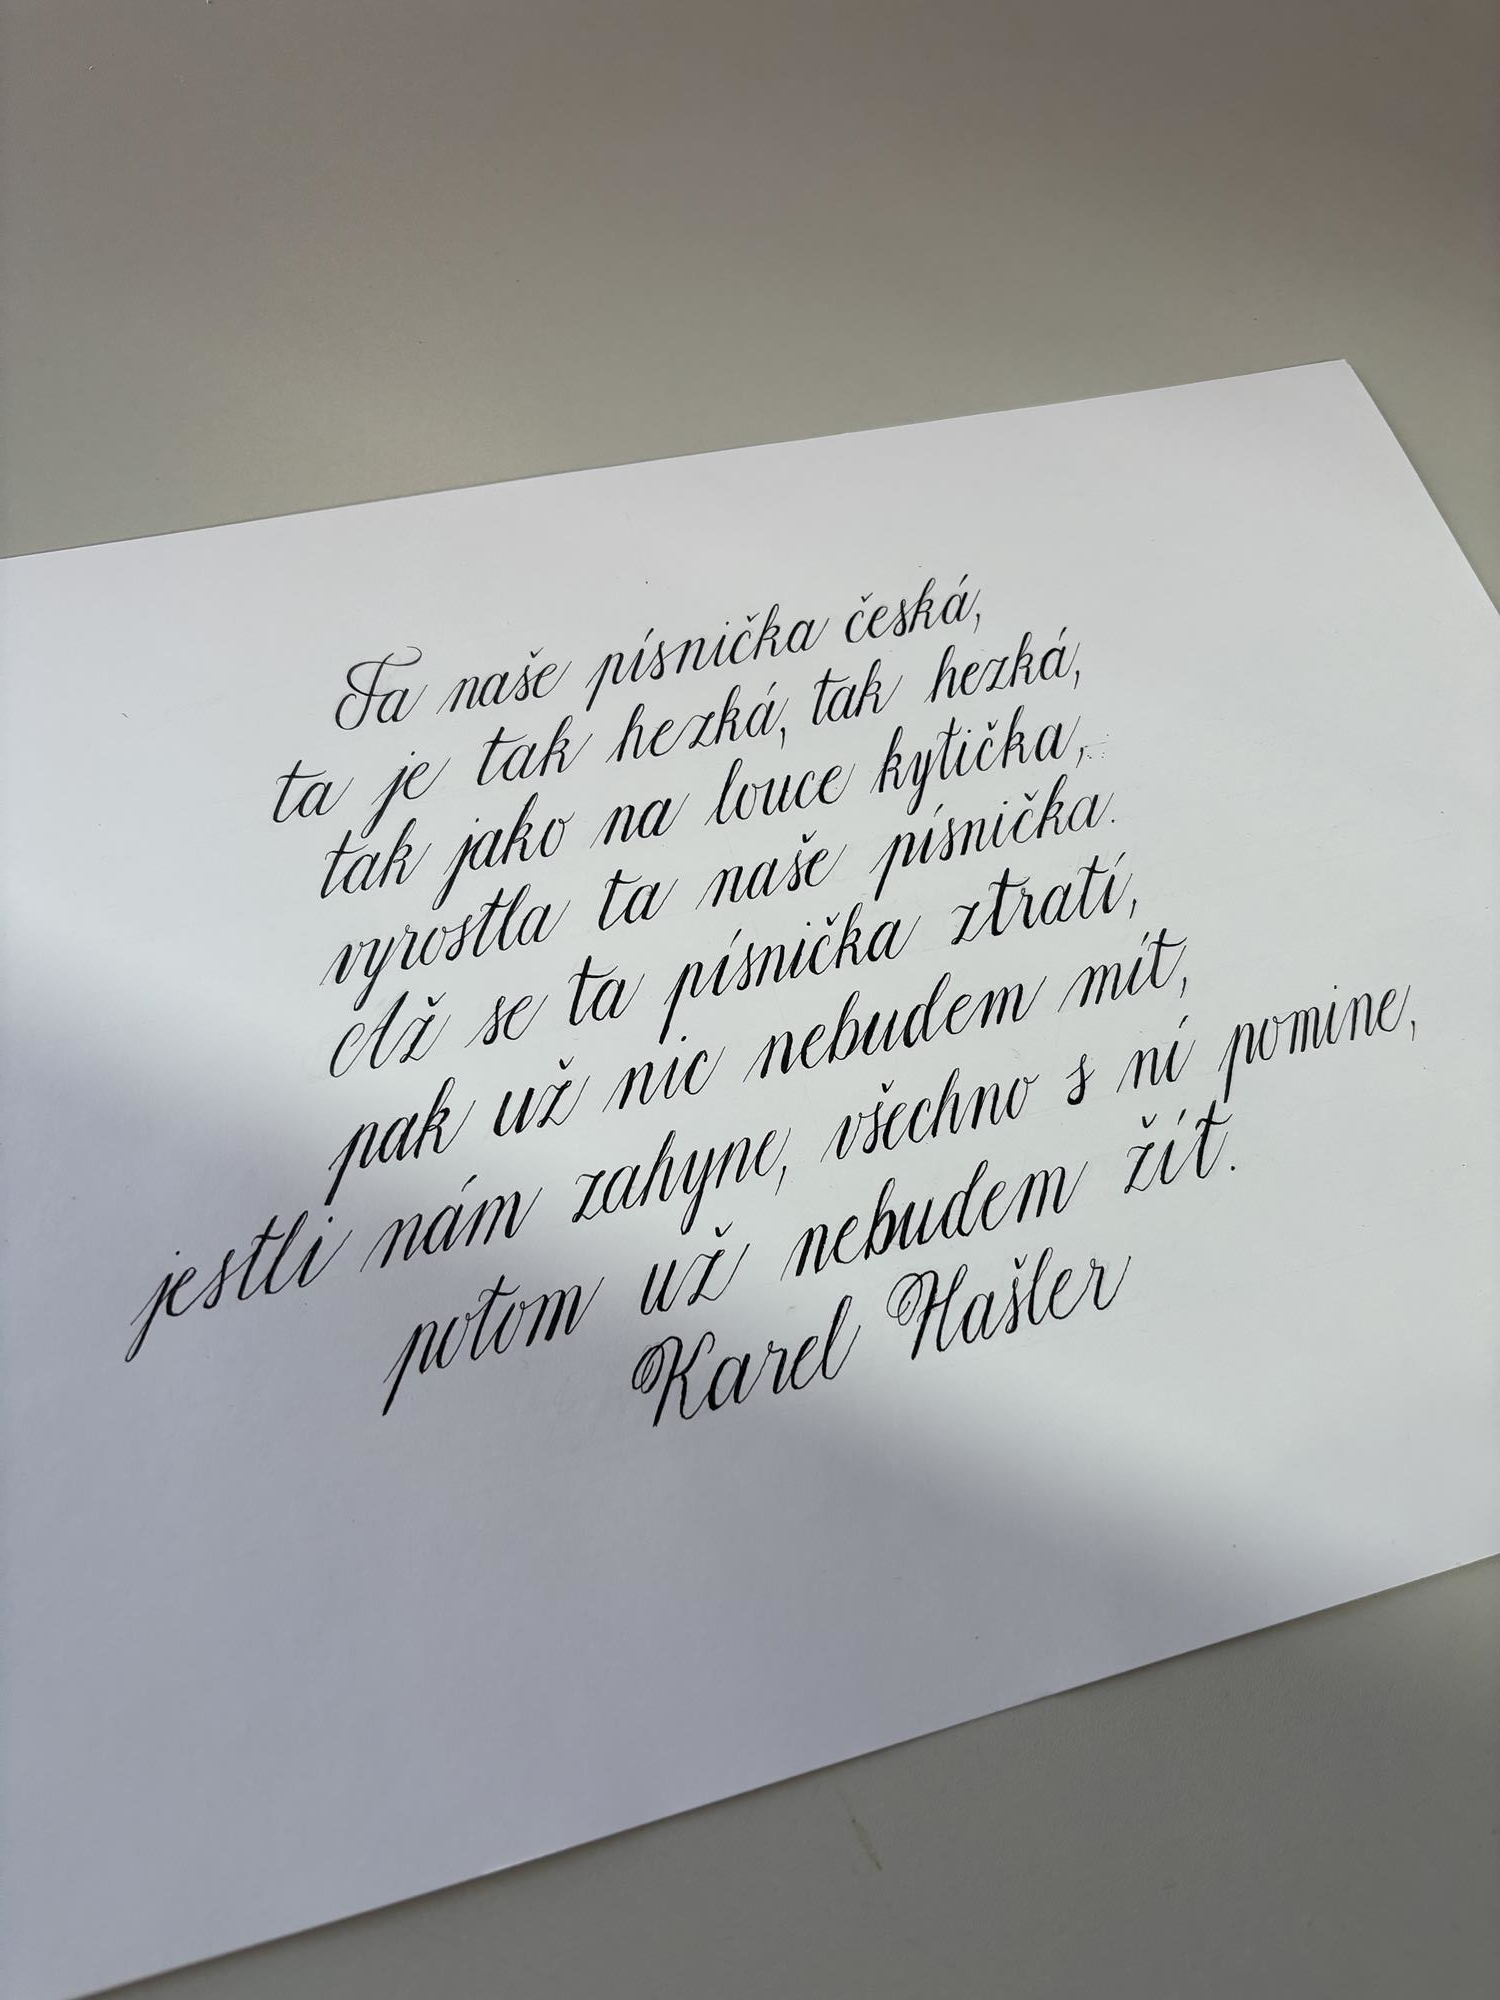 Ta naše písnička česká,
ta je tak hezká, tak hezká,
tak jako na louce kytička,
vyrostla ta naše písnička.
Až se ta písnička ztratí,
pak už nic nebudem mít,
jestli nám zahyne, všechno s ní pomine,
potom už nebudem žít.
Karel Hašler